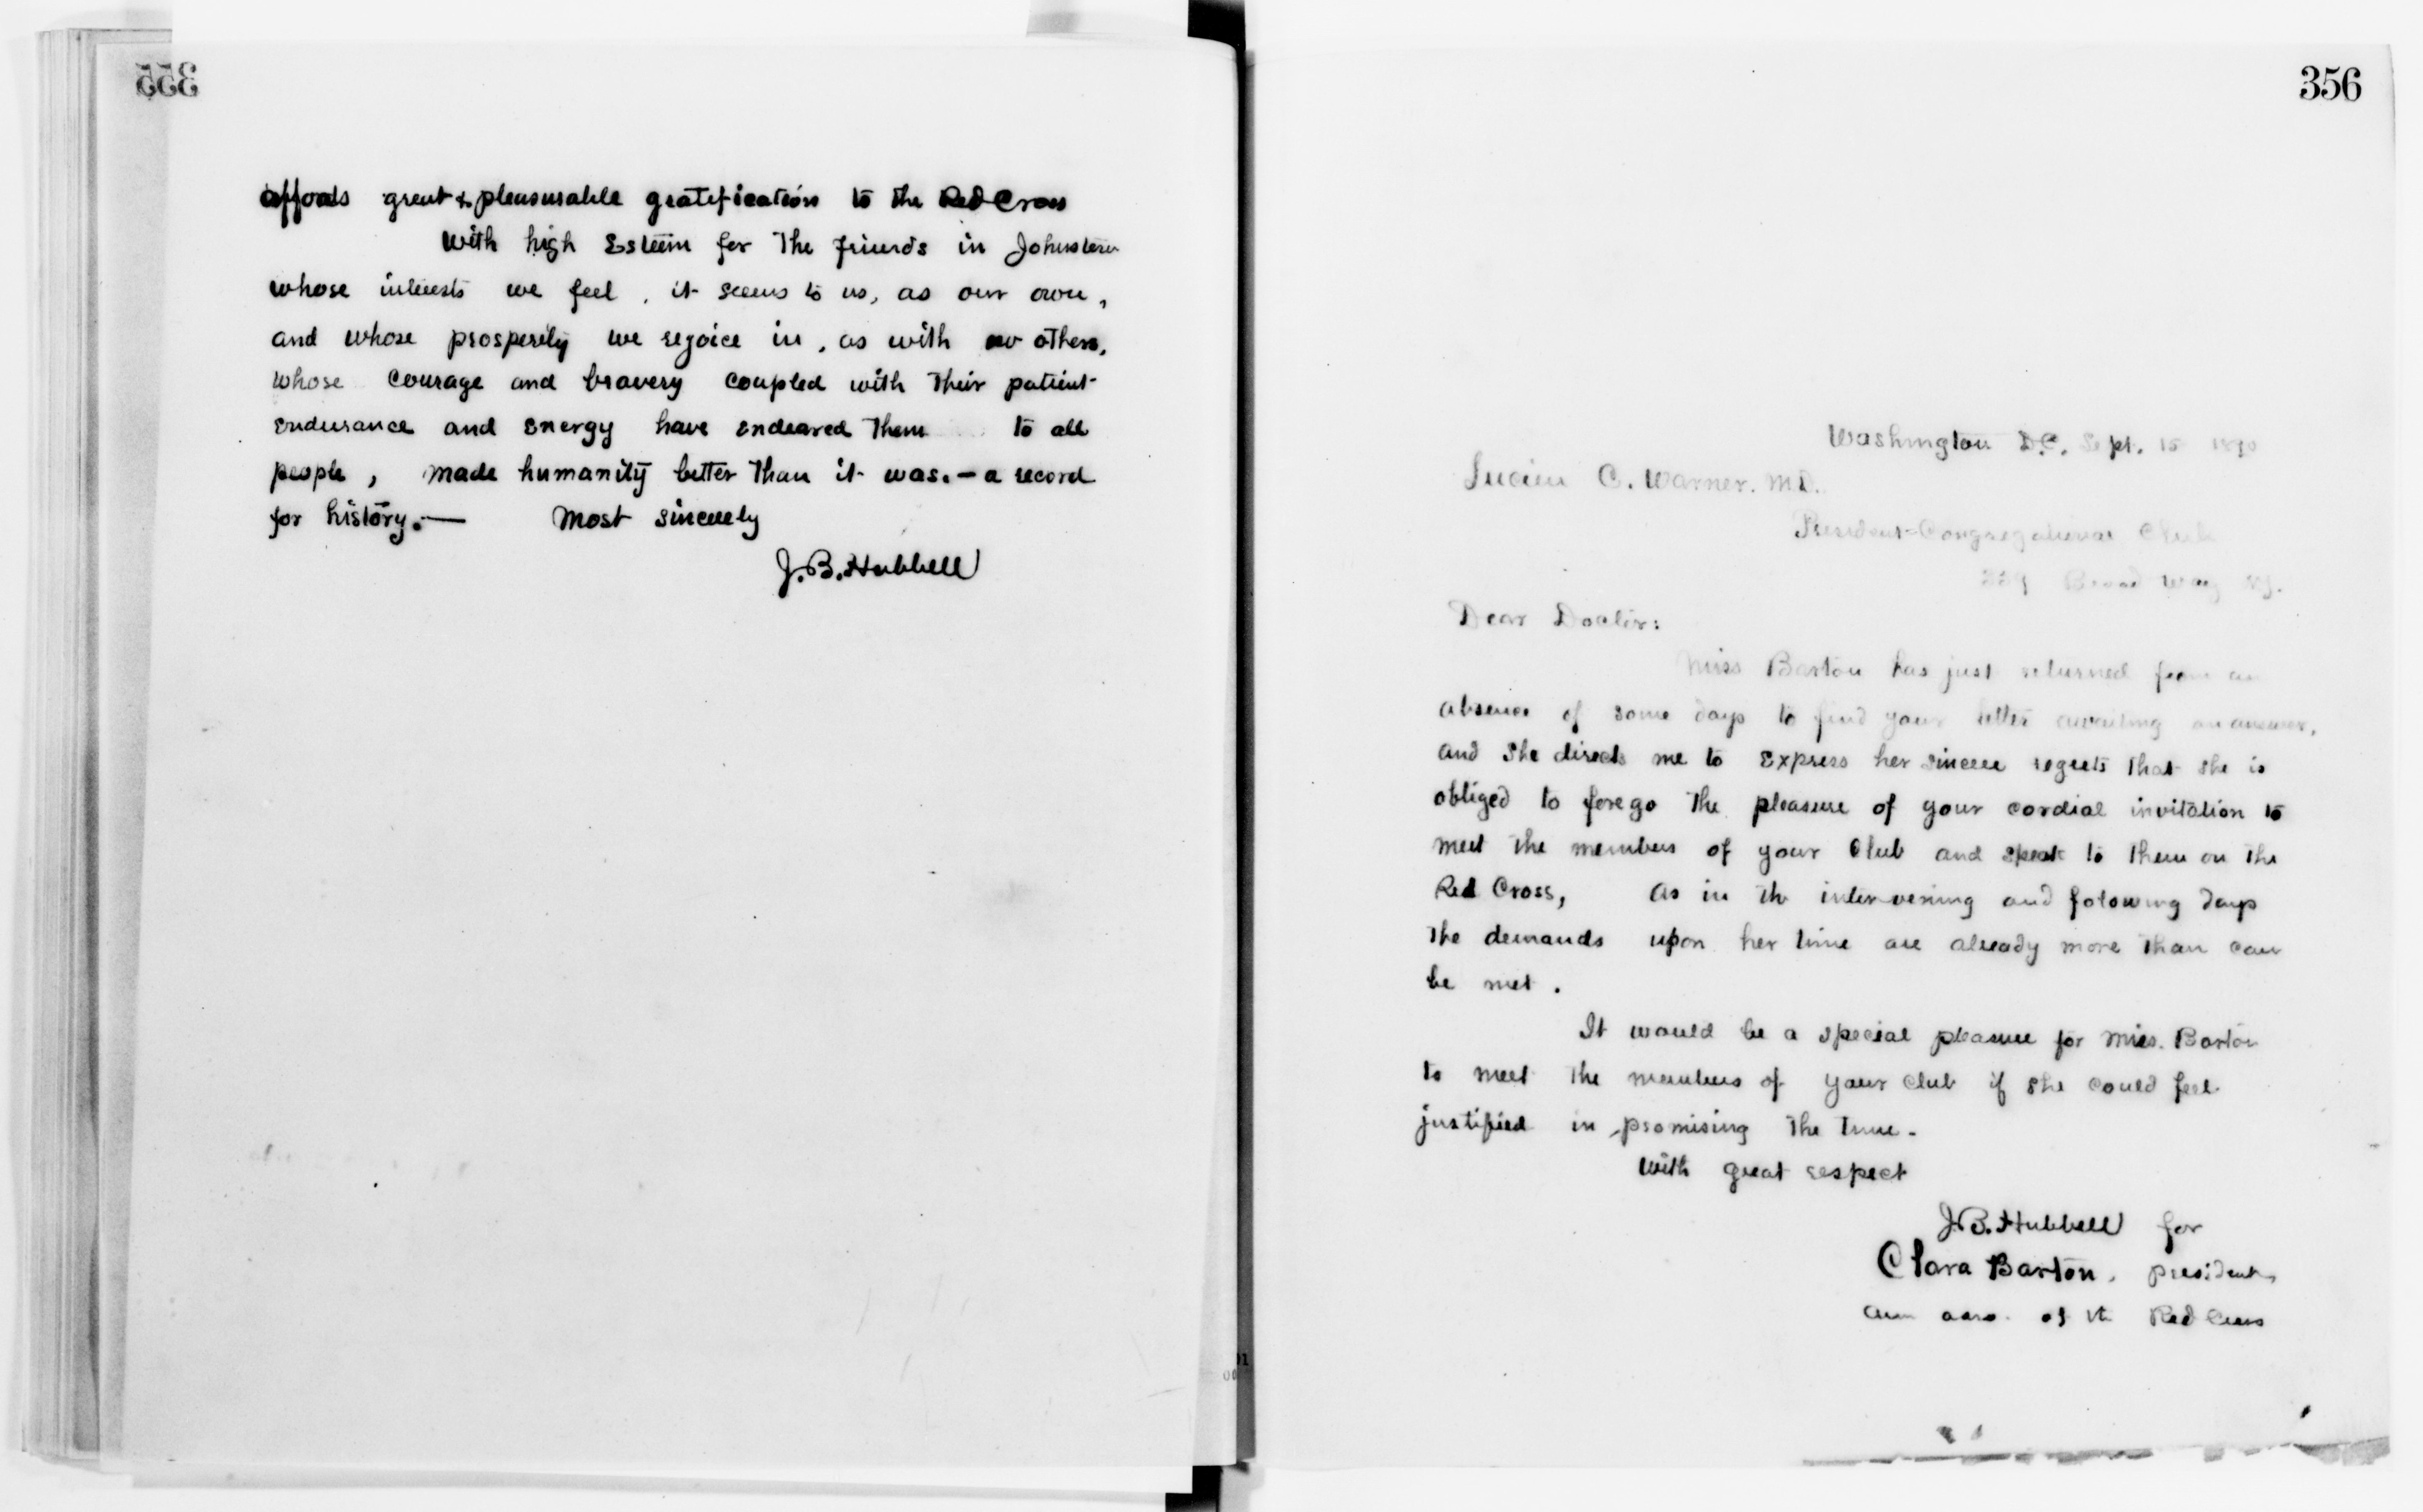 355
affords great & pleasurable gratification to the Red Cross
With high Esteem for the friends in Johnstown
whose interests we feel, it seems to us, as our own,
and whose prosperity we rejoice in, as with no others,
whose courage and bravery coupled with their patient
endurance and energy have endeared them to all
people, made humanity better than it was. — a record
for history. — Most sincerely
J.B. Hubbell
356
Washington D.C. Sept. 15 1890
Lucien C. Warner. M.D.
President Congregational Club
Broad Way NY.
Dear Doctor:
Miss Barton has just returned from an
absence of some days to find your letter awaiting an answer,
and she directs me to express her sincere regrets that she is
obliged to forego the pleasure of your cordial invitation to
meet the members of your Club and speak to them on the
Red Cross, as in the intervening and folowing days
the demands upon her time are already more than can
be met.
It would be a special pleasure for Miss. Barton
to meet the members of your club if she could feel
justified in promising the time.
With great respect
J.B. Hubbell for
Clara Barton, president,
Am asso. of the Red Cross